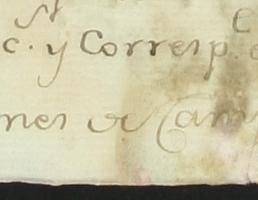 c. y Corresp.
nes de Cam